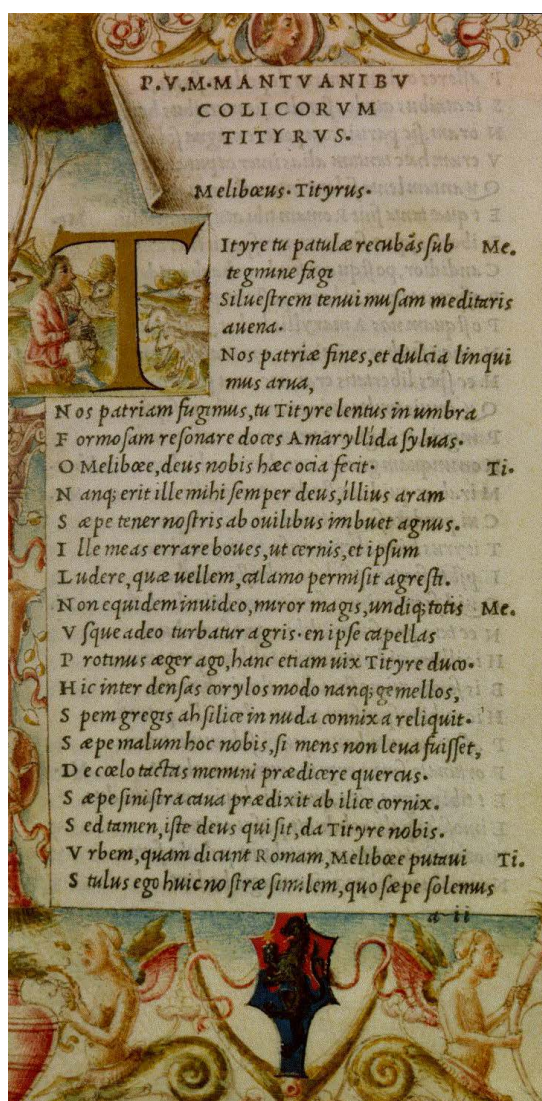 P.V.M.MANTVANI BV
COLICORVM
TITYRVS.
Melibœus. Tityrus.
TItyre tu patulæ recubãs ſub Me.
tegmine fagi
Silueſtrem tenui muſam meditaris
auena.
Nos patriæ fines, et dulcia linqui
mus arua,
Nos patriam fugimus, tu Tityre lentus in umbra
Formoſam reſonare doces Amaryllida ſyluas.
O Melibœe, deus nobis hæc ocia fecit. Ti.
Nanq; erit ille mihi ſemper deus, illius aram
Sæpe tener noſtris ab ouilibus imbuet agnus.
Ille meas errare boues, ut cernis, et ipſum
Ludere, quæ uellem, calamo permiſit agreſti.
Non equidem inuideo, miror magis, undiq; totis Me.
Vſque adeo turbatur agris. en ipſe capellas
Protinus æger ago, hanc etiam uix Tityre duco.
Hic inter denſas corylos modo nanq; gemellos,
Spem gregis ah ſilice in nuda connixa reliquit.
Sæpe malum hoc nobis, ſi mens non leua fuiſſet,
De cœlo tactas memini prædicere quercus.
Sæpe ſiniſtra caua prædixit ab ilice cornix.
Sed tamen, iſte deus qui ſit, da Tityre nobis.
Vrbem, quam dicunt Romam, Melibœe putaui Ti.
Stulus ego huic noſtræ ſimilem, quo ſæpe ſolemus
a ii